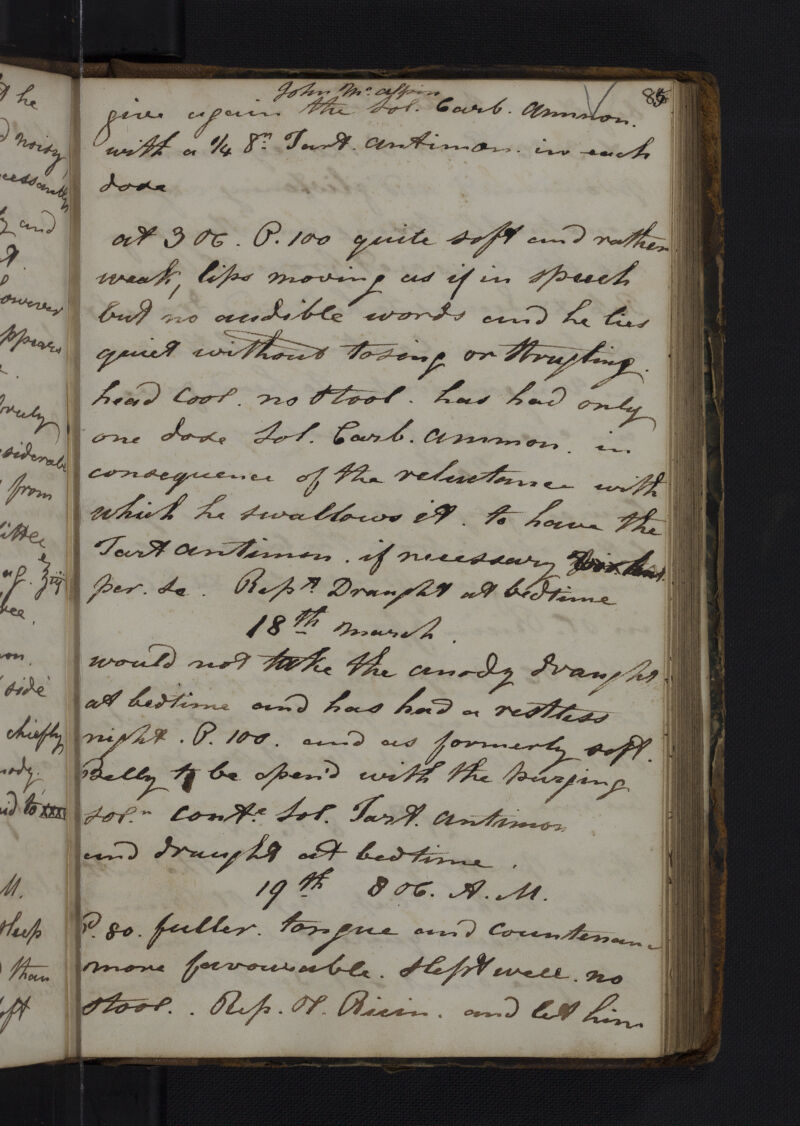 John McAffrin
85
give again the Sol. Carb. Ammon.
with a 1/4 gn. Tart. antimon. in each
dose
at 3 OC. P. 100 quite soft and rather
weak, lips moving as if in speech
but no audible words and he lies
quiet without tosing or strugling.
head cool. no stool. has had only
one dose Sol. Carb. Ammon. in
consequence of the reluctance with
which he swallows it. to have the
Tart antimon. if necessary
per. se. Rept. Draught at bedtime
18th March.
would not take the anody draught
at bedtime and has had a restless
night. P. 100. and as formerly soft.
Belly to be open'd with the purging
sol.n cont.e Sol. Tart. Antimon
and draught at bedtime.
19th 8 OC. A. M.
P. 80. fuller. tongue and countenance
more favourable. slept well. no
stool. . Rep. Ol. Ricin. and let him
t he
d noisy
cessantly
ly and
t.
however
ppears
siderable
from
little
ag. ʒiij
side
chiefly
nody.
id to
M.
sleep
than
oft